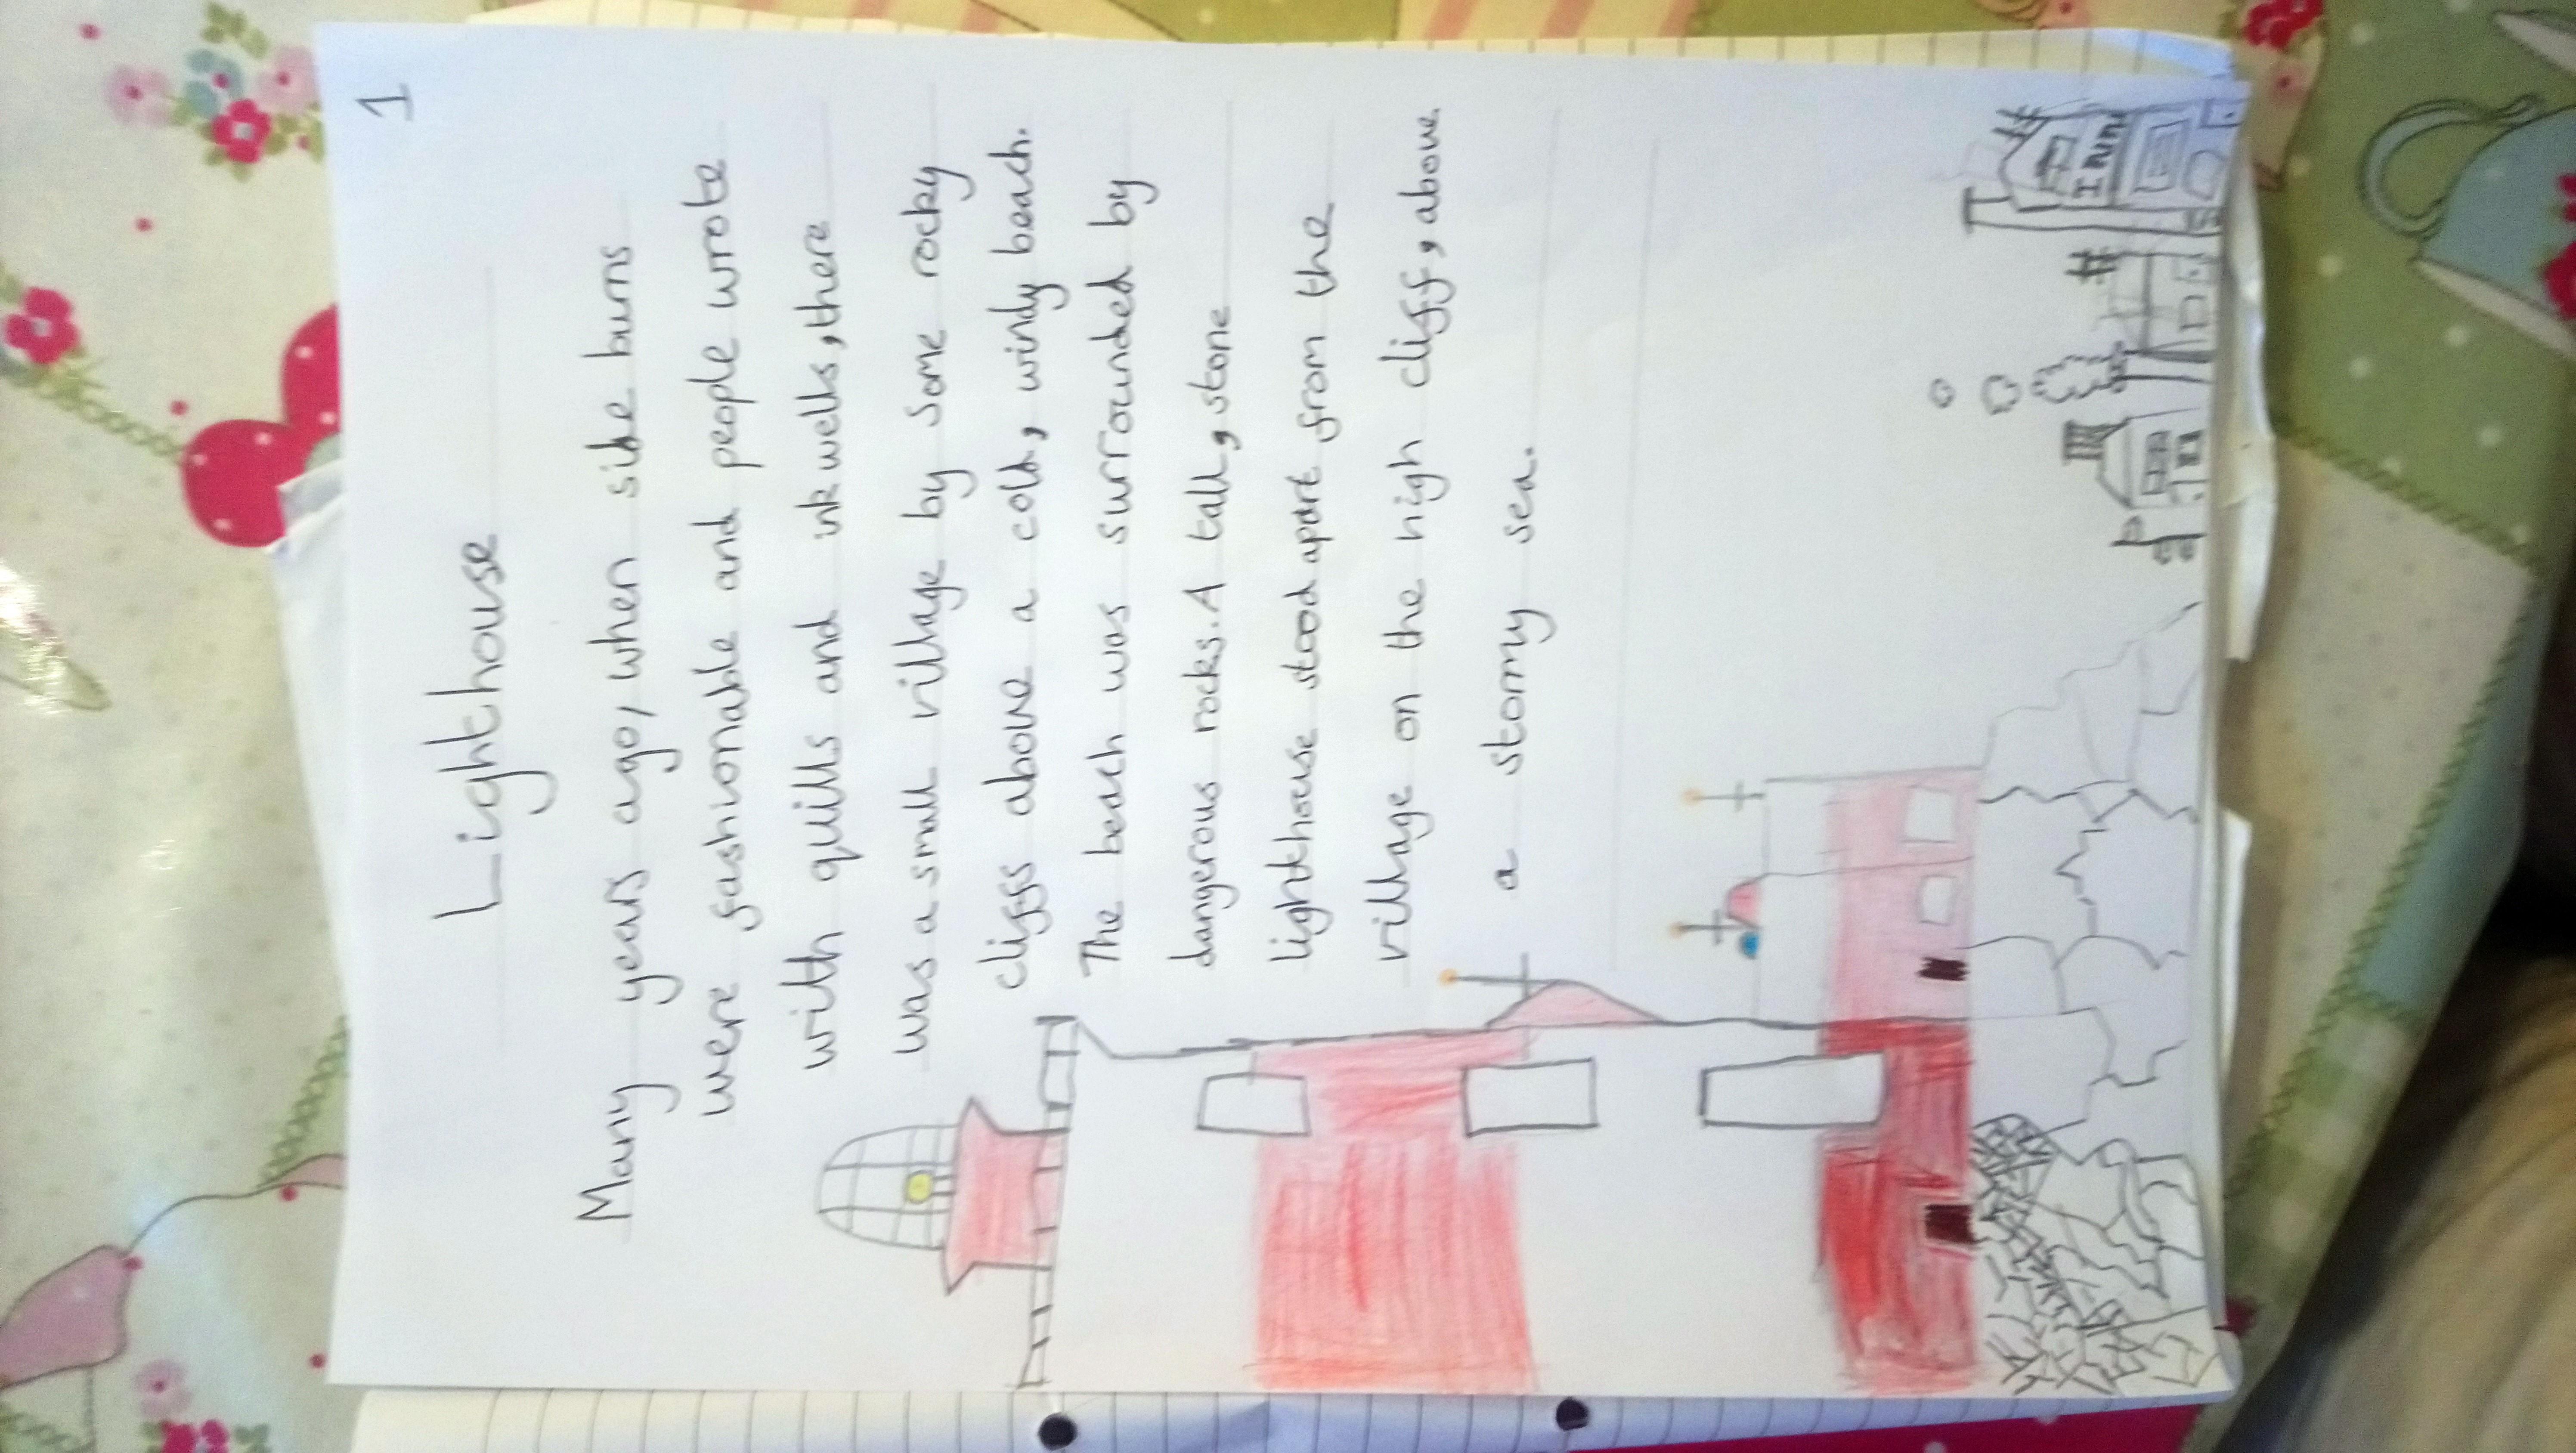 1
Lighthouse
Many years ago, when silk buns
were fashionable and people wrote
with quills and ink wells, there
was a small village by some rocky
cliffs above a cold, windy beach.
The beach was surrounded by
dangerous rocks. A tall, stone
lighthouse stood apart from the
village on the high cliff, above
a stormy sea.
INN